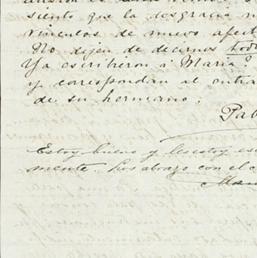 siento que la desgracia n
vínculos de nuevo afect
No dejen de decirnos todo
Ya escribieron á María?
y correspondan al entra
de su hermano.
Pab
Estoy bueno y les estoy es
mente. Los abrazo con el c
Man